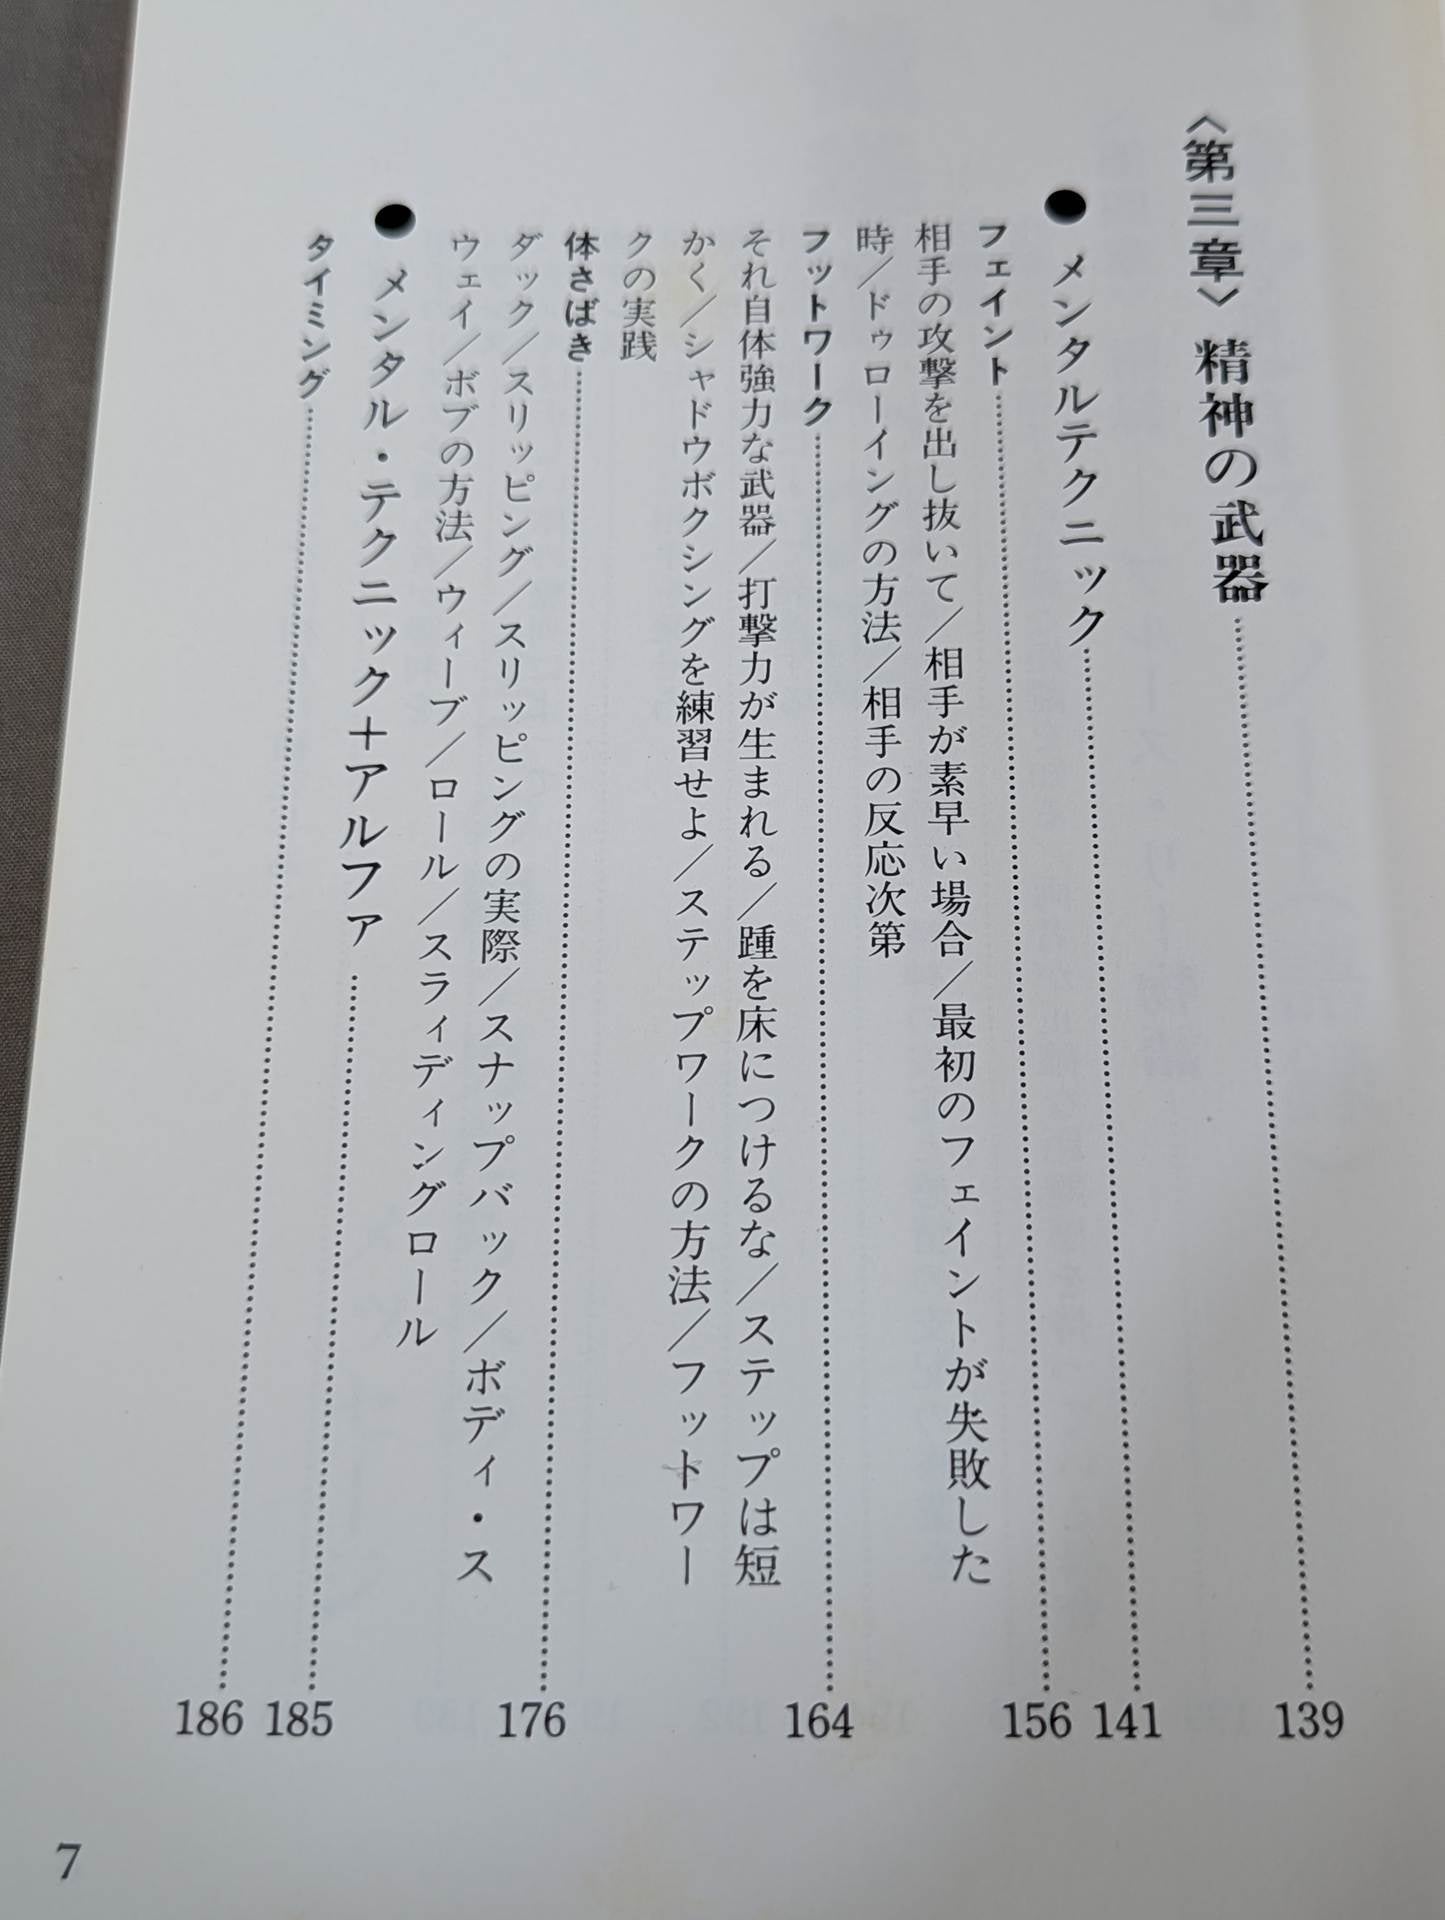 〈第三章〉精神の武器……139
●メンタルテクニック……141
フェイント……156
相手の攻撃を出し抜いて／相手が素早い場合／最初のフェイントが失敗した
時／ドゥローイングの方法／相手の反応次第
フットワーク……164
それ自体強力な武器／打撃力が生まれる／踵を床につけるな／ステップは短
かく／シャドウボクシングを練習せよ／ステップワークの方法／フットワー
クの実践
体さばき……176
ダック／スリッピング／スリッピングの実際／スナップバック／ボディ・ス
ウェイ／ボブの方法／ウィーブ／ロール／スライディングロール
●メンタル・テクニック＋アルファ……185
タイミング……186
7